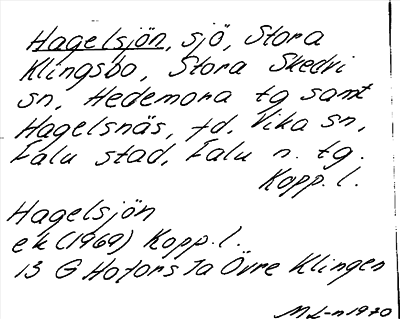 Hagelsjön, sjö, Stora
Klingsbo, Stora Skedvi
sn, Hedemora tg samt
Hagelsnäs, fd. Vika sn,
Falu stad, Falu n. tg.
Kopp. l.
Hagelsjön
ek (1969) Kopp. l.
13 G Hofors 7a Övre Klingen
ML-n 1970